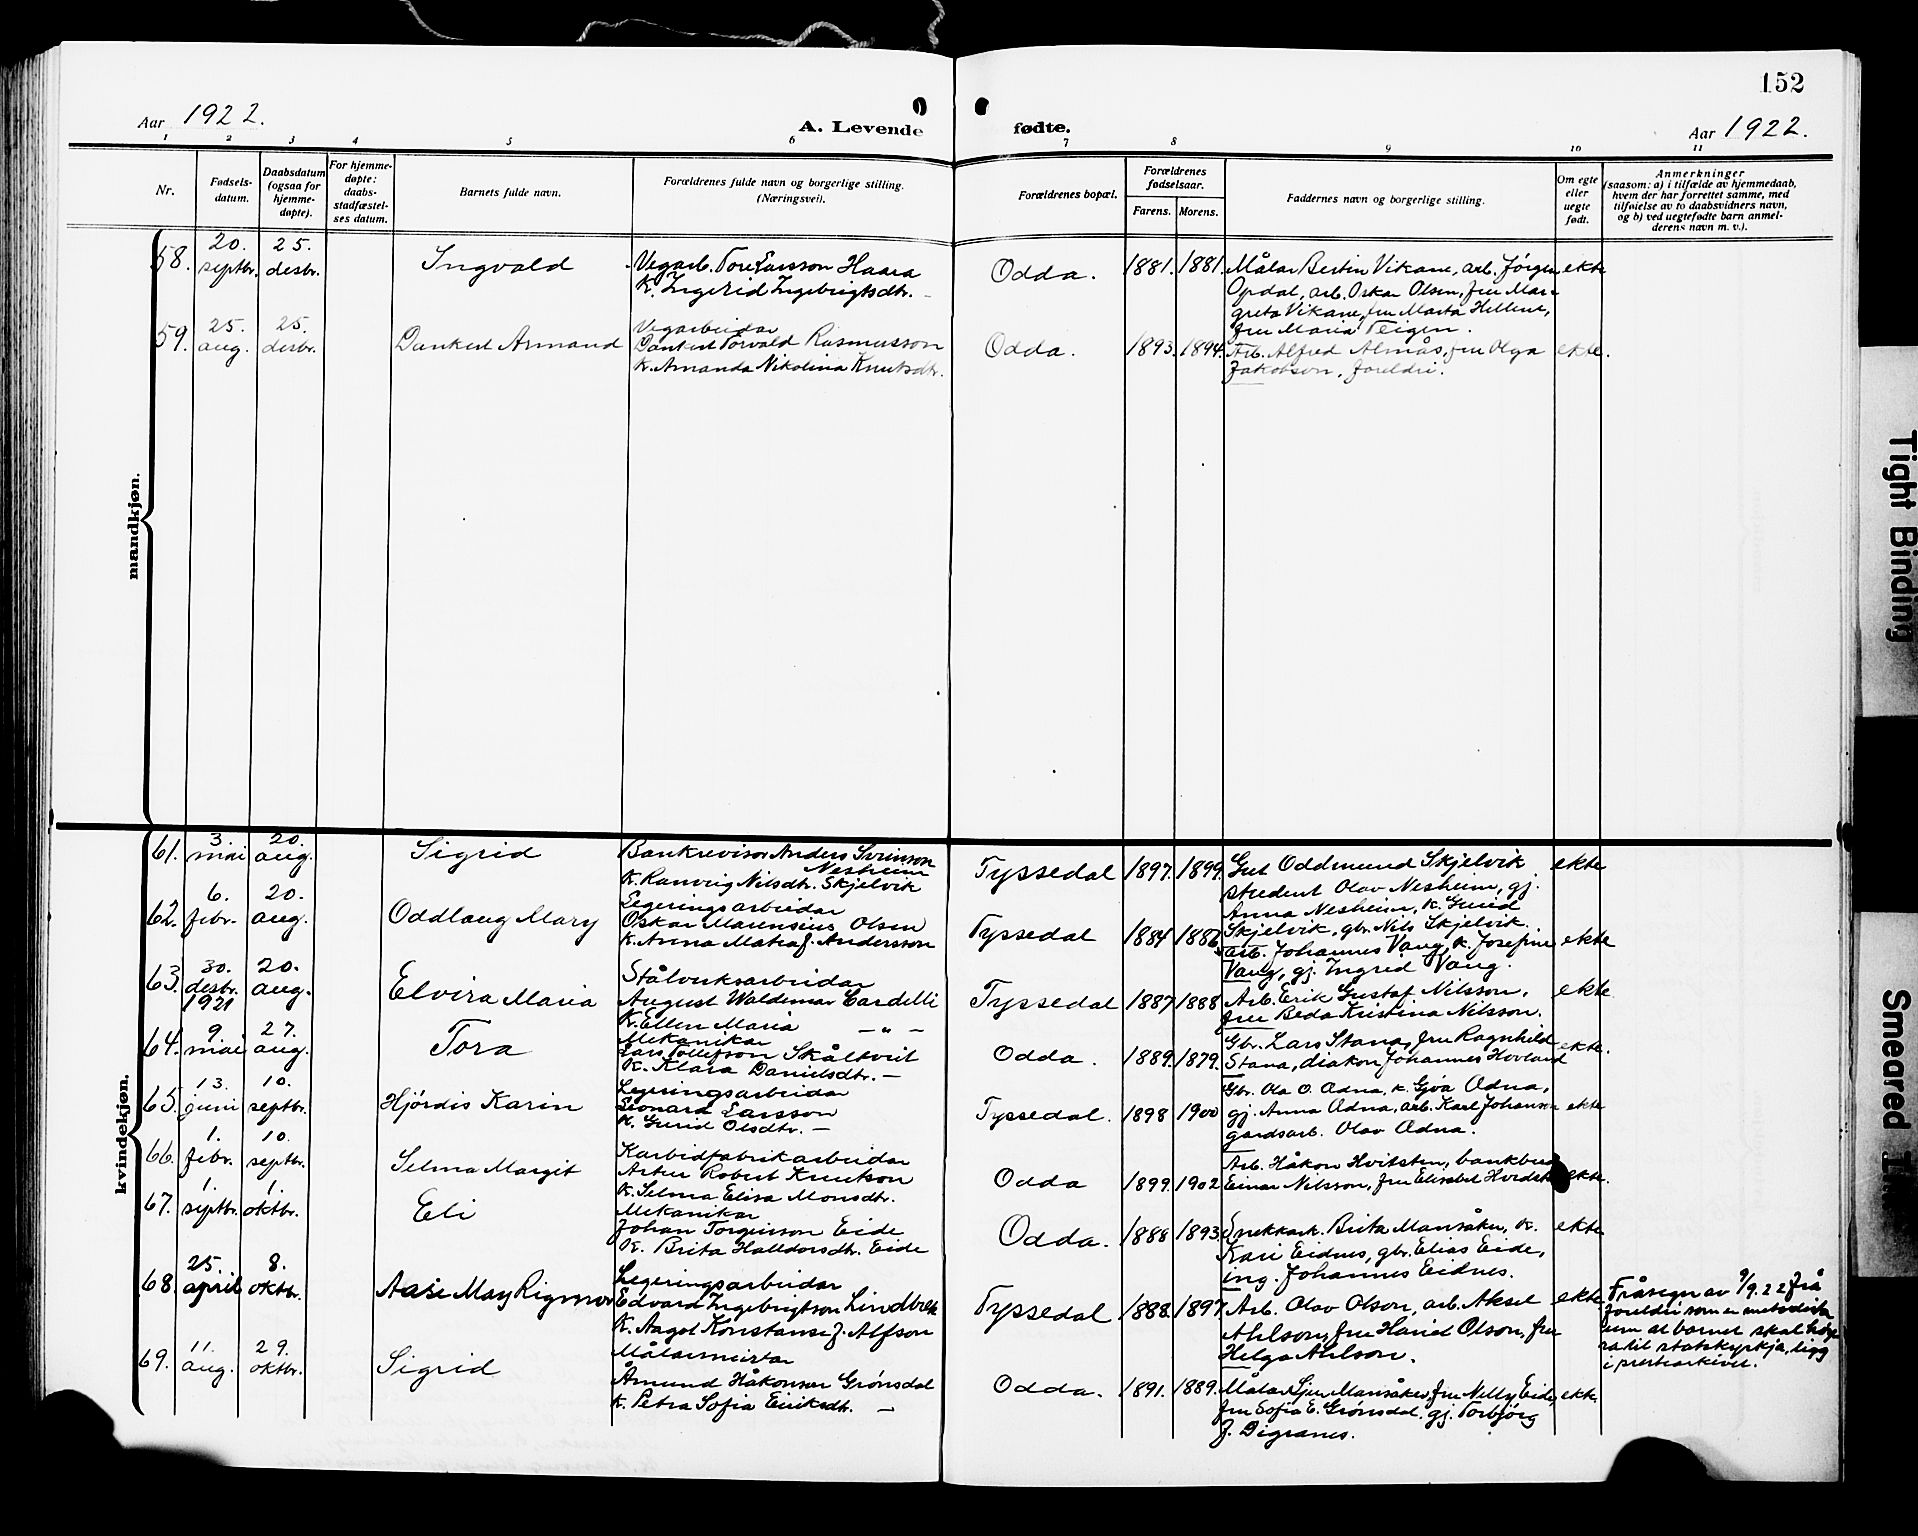 152
Aar 1922.
A. Levende
fødte.
Aar 1922.
1 2 3 4 5 6 7 8 9 10 11
Nr.
Fødsels-
datum.
Daabsdatum
(ogsaa for
hjemme-
døpte).
For hjemme-
døpte:
daabs-
stadfæstel-
ses datum.
Barnets fulde navn.
Forældrenes fulde navn og borgerlige stilling.
(Næringsvei).
Forældrenes bopæl.
Forældrenes
fødselsaar.
Farens. Morens.
Faddernes navn og borgerlige stilling.
Om egte
eller
uegte
født.
Anmerkninger
(saasom: a) i tilfælde av hjemmedaab,
hvem der har forrettet samme, med
tilføielse av to daabsvidners navn,
og b) ved uegtefødte barn anmel-
derens navn m. v.).
mandkjøn.
58.
20.
septbr.
25.
desbr.
Ingvald
Vegarb. Tore Larsson Haara
K. Ingerid Ingebrigtsdtr. -
Odda.
1881. 1881.
Målar Bertin Vikane, arb. Jörgen
Opdal, arb. Oskar Olsen, fru Mar-
greta Vikane, fru Marta Hellene,
fru Maria Teigen.
ekte
59.
25.
aug.
25.
desbr.
Dankert Armand
Vegarbeidar
Dankert Torvald Rasmusson
K. Amanda Nikolina Knutsdtr.
Odda.
1893. 1894.
Arb. Alfred Almås, fru Olga
Jakobson, foreldri.
ekte.
kvindekjøn.
61.
3.
mai
20.
aug.
Sigrid
Bankrevisor Anders Sveinson
Nesheim
K. Ranveig Nilsdtr. Skjelvik
Tyssedal
1897. 1899.
Gut Oddmund Skjelvik
student Olav Nesheim, gj.
Anna Nesheim, k. Gurid
Skjelvik, gbr. Nils Skjelvik.
ekte
62.
6.
febr.
20.
aug.
Oddlaug Mary
Legeringsarbeidar
Oskar Marensius Olsen
K. Anna Matea f. Andersson
Tyssedal
1884
Arb. Johannes Vang, k. Josefine
Vang, gj. Ingrid Vang.
ekte
63.
30.
desbr.
1921
20.
aug.
Elvira Maria
Stålverksarbeidar
August Waldemar Cardelli
K. Ellen Maria — " —
Tyssedal
1887 1888
Arb. Erik Gustaf Nilsson,
fru Beda Kristina Nilsson.
ekte
64.
9
mai
27.
aug.
Tora
Mekanikar
Lars Tollefson Skåltveit
K. Klara Danielsdtr. -
Odda.
1889. 1879.
Gbr. Lars Stana, fru Ragnhild
Stana, diakon Johannes Hovland
ekte.
65.
13.
juni
10.
septbr.
Hjördis Karin
Legeringsarbeidar
Leonard Larsson
K. Gurid Olsdtr. —
Tyssedal.
1898 1900
Gbr. Ola O. Ædna, k. Gjöa Ædna,
gj. Anna Ædna, arb. Karl Johansen
gardsarb. Olav Ædna.
ekte
66.
1.
febr.
10.
septbr.
Selma Margit
Karbidfabrikarbeidar
Artur Robert Knutson
K. Selma Elisa Monsdtr.
Odda
1899. 1902
Arb. Håkon Hvitsten,
Einar Nilsson, fru Elisabet
ekte.
67.
1.
septbr.
1.
oktbr.
Eli
Mekanikar
Johan Torgeirson Eide
K. Brita Halldorsdtr. Eide
Odda.
1888 1893
Snekkark. Brita Mansåker, k.
Kari Eidnes, gbr. Elias Eide,
ing. Johannes Eidnes.
ekte
68.
25.
april
8.
oktbr.
Aase May Rigmor
Legeringsarbeidar
Edvard Ingebrigtson Lindbekk
K. Aagot Konstanse f. Alfson
Tyssedal
1888. 1897
Arb. Olav Olson, arb. Aksel
Ahlson, fru Havid Olson, fru
Helga Ahlson.
ekte
Fråsegn av 9/9.22 frå
foreldri som er metodista
um at barnet skal höyra
til statskyrkja, ligg
i prestearkivet.
69.
11.
aug.
29.
oktbr.
Sigrid
Målarmeistar
Åmund Håkonson Grönsdal
K. Petra Sofia Eiriksdtr. —
Odda.
1891. 1889.
Målar Sjur Mansåker, fru Nelly Eide,
fru Sofia E. Grönsdal, gj. Torbjörg
J. Digranes.
ekte.
Tight Binding
Smeared